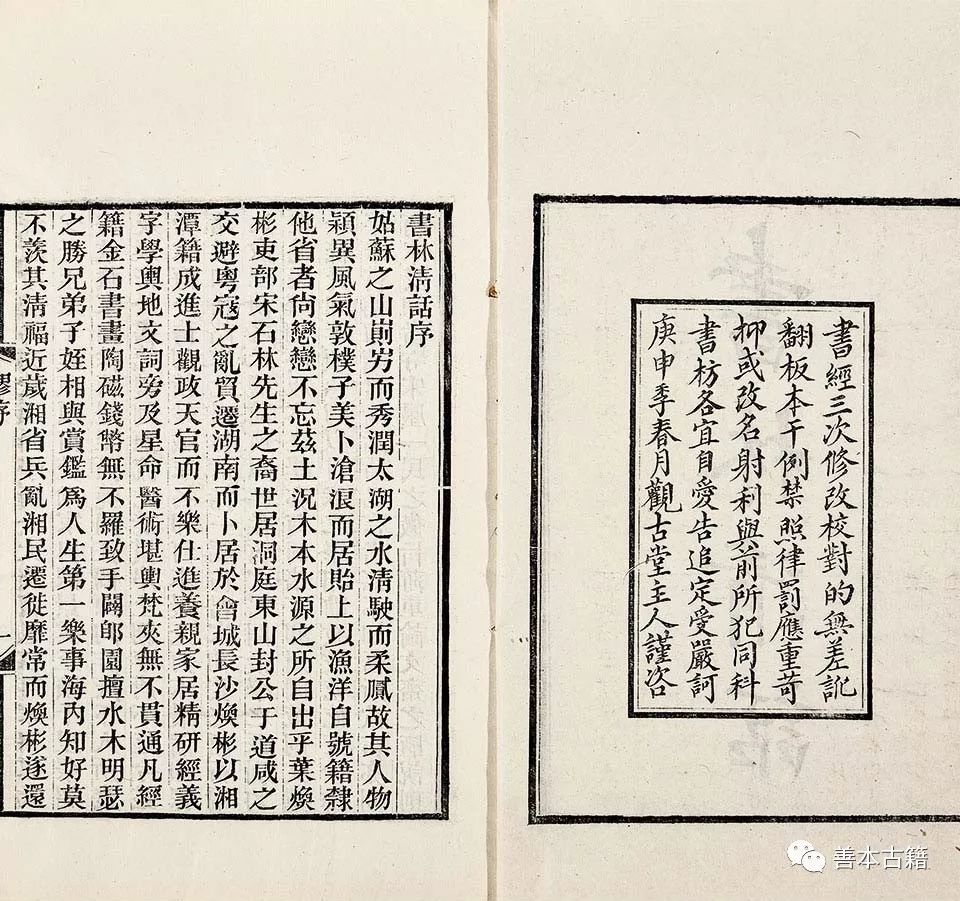 書經三次修改校對的無差訛
翻板本干例禁照律罰應重苛
抑或改名射利與前所犯同科
書枋各宜自愛告追定受嚴訶
庚申季春月觀古堂主人謹咨
書林清話序
姑蘇之山崱屴而秀潤太湖之水清駛而柔膩故其人物
穎異風氣敦樸子美卜滄浪而居貽上以漁洋自號籍隸
他省者尙戀戀不忘茲土況木本水源之所自出乎葉煥
彬吏部宋石林先生之裔世居洞庭東山封公于道咸之
交避粵寇之亂貿遷湖南而卜居於會城長沙煥彬以湘
潭籍成進士觀政天官而不樂仕進養親家居精研經義
字學輿地文詞旁及星命醫術堪輿梵夾無不貫通凡經
籍金石書畫陶磁錢幣無不羅致手闢郋園擅水木明瑟
之勝兄弟子姪相與賞鑑爲人生第一樂事海內知好莫
不羨其淸福近歲湘省兵亂湘民遷徙靡常而煥彬遂還
繆序
一
善本古籍